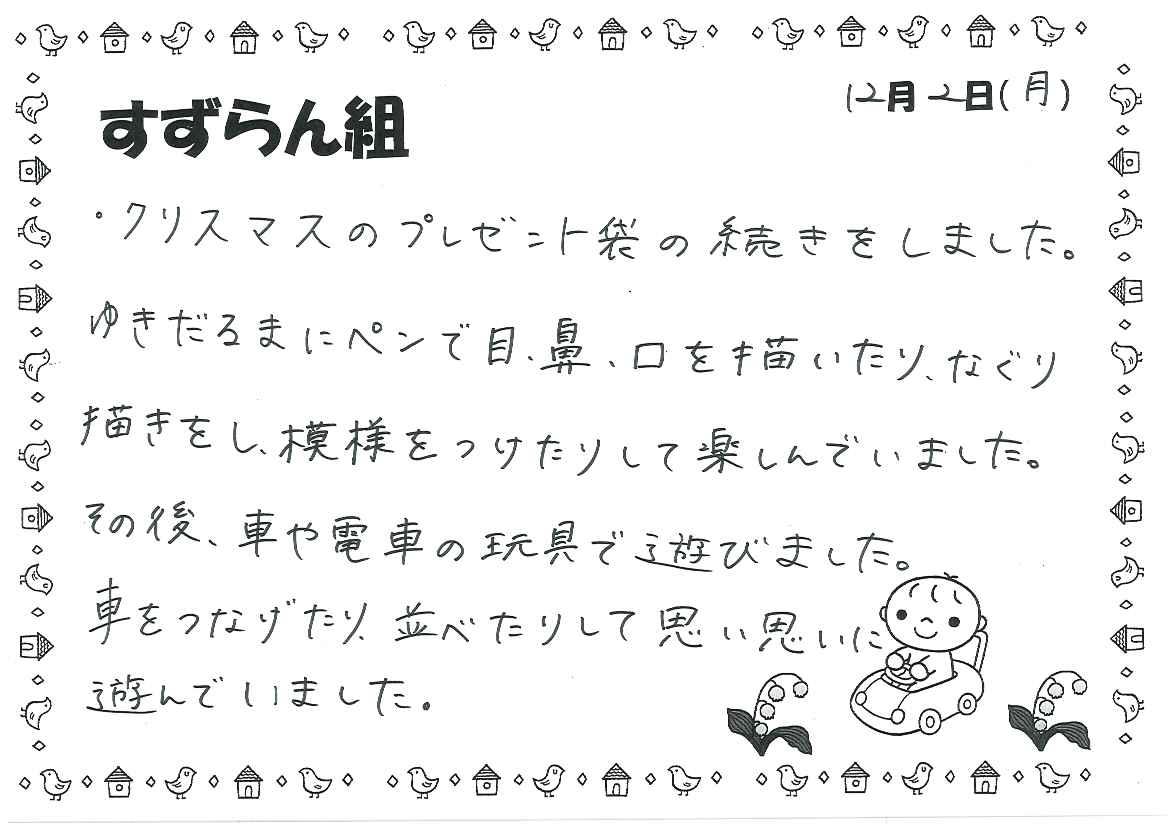 12月2日(月)
すずらん組
・クリスマスのプレゼント袋の続きをしました。
ゆきだるまにペンで目、鼻、口を描いたり、なぐり
描きをし、模様をつけたりして楽しんでいました。
その後、車や電車の玩具で遊びました。
車をつなげたり、並べたりして思い思いに
遊んでいました。